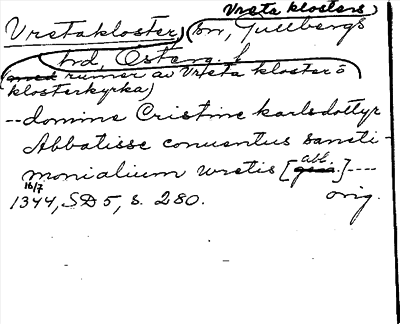 Vreta klosters)
Vretakloster, sn, Gullbergs
hrd, Österg. l
(med ruiner av Vreta klosters
klosterkyrka)
--domine Cristine karlsdottyr
Abbatisse conuentus sancti-
monialium wretis [abl.]----
16/7
1344, SD 5, s. 280. orig.